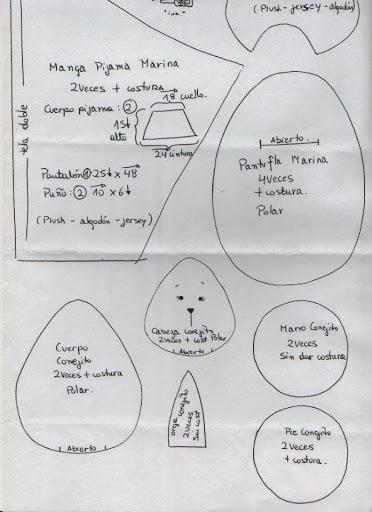 (Plush - jersey - algodón)
Manga Pijama Marina
2Veces + costura
Cuerpo pijama: 2
18 cuello.
15↓
alto
24 cintura
Pantalón 1 25↓ x 48
Puño: 2 10 x 6↓
(Plush - algodón - jersey)
tela doble
Abierto.
Pantufla Marina
4Veces
+ costura.
Polar
Cabeza conejito
2Veces + cost Polar
Abierto
Cuerpo
Conejito
2Veces + costura
Polar.
Abierto
oreja conejito
2Veces
Sin cost
Mano Conejito
2Veces
Sin dar costura
Pie Conejito
2Veces
+ costura.